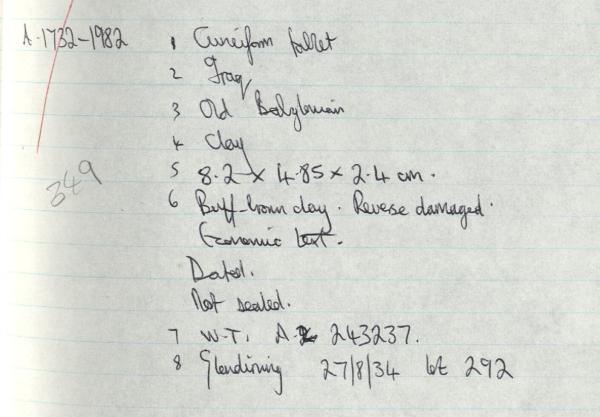 A.1732-1982 1 Cuneiform tablet
2 Iraq
3 Old Babylonian
4 Clay
5 8.2 x 4.85 x 2.4 cm.
349
6 Buff-brown clay. Reverse damaged.
Economic text.
Dated.
Not sealed.
7 W.T. A 243237.
8 Glendining 27/8/34 lot 292